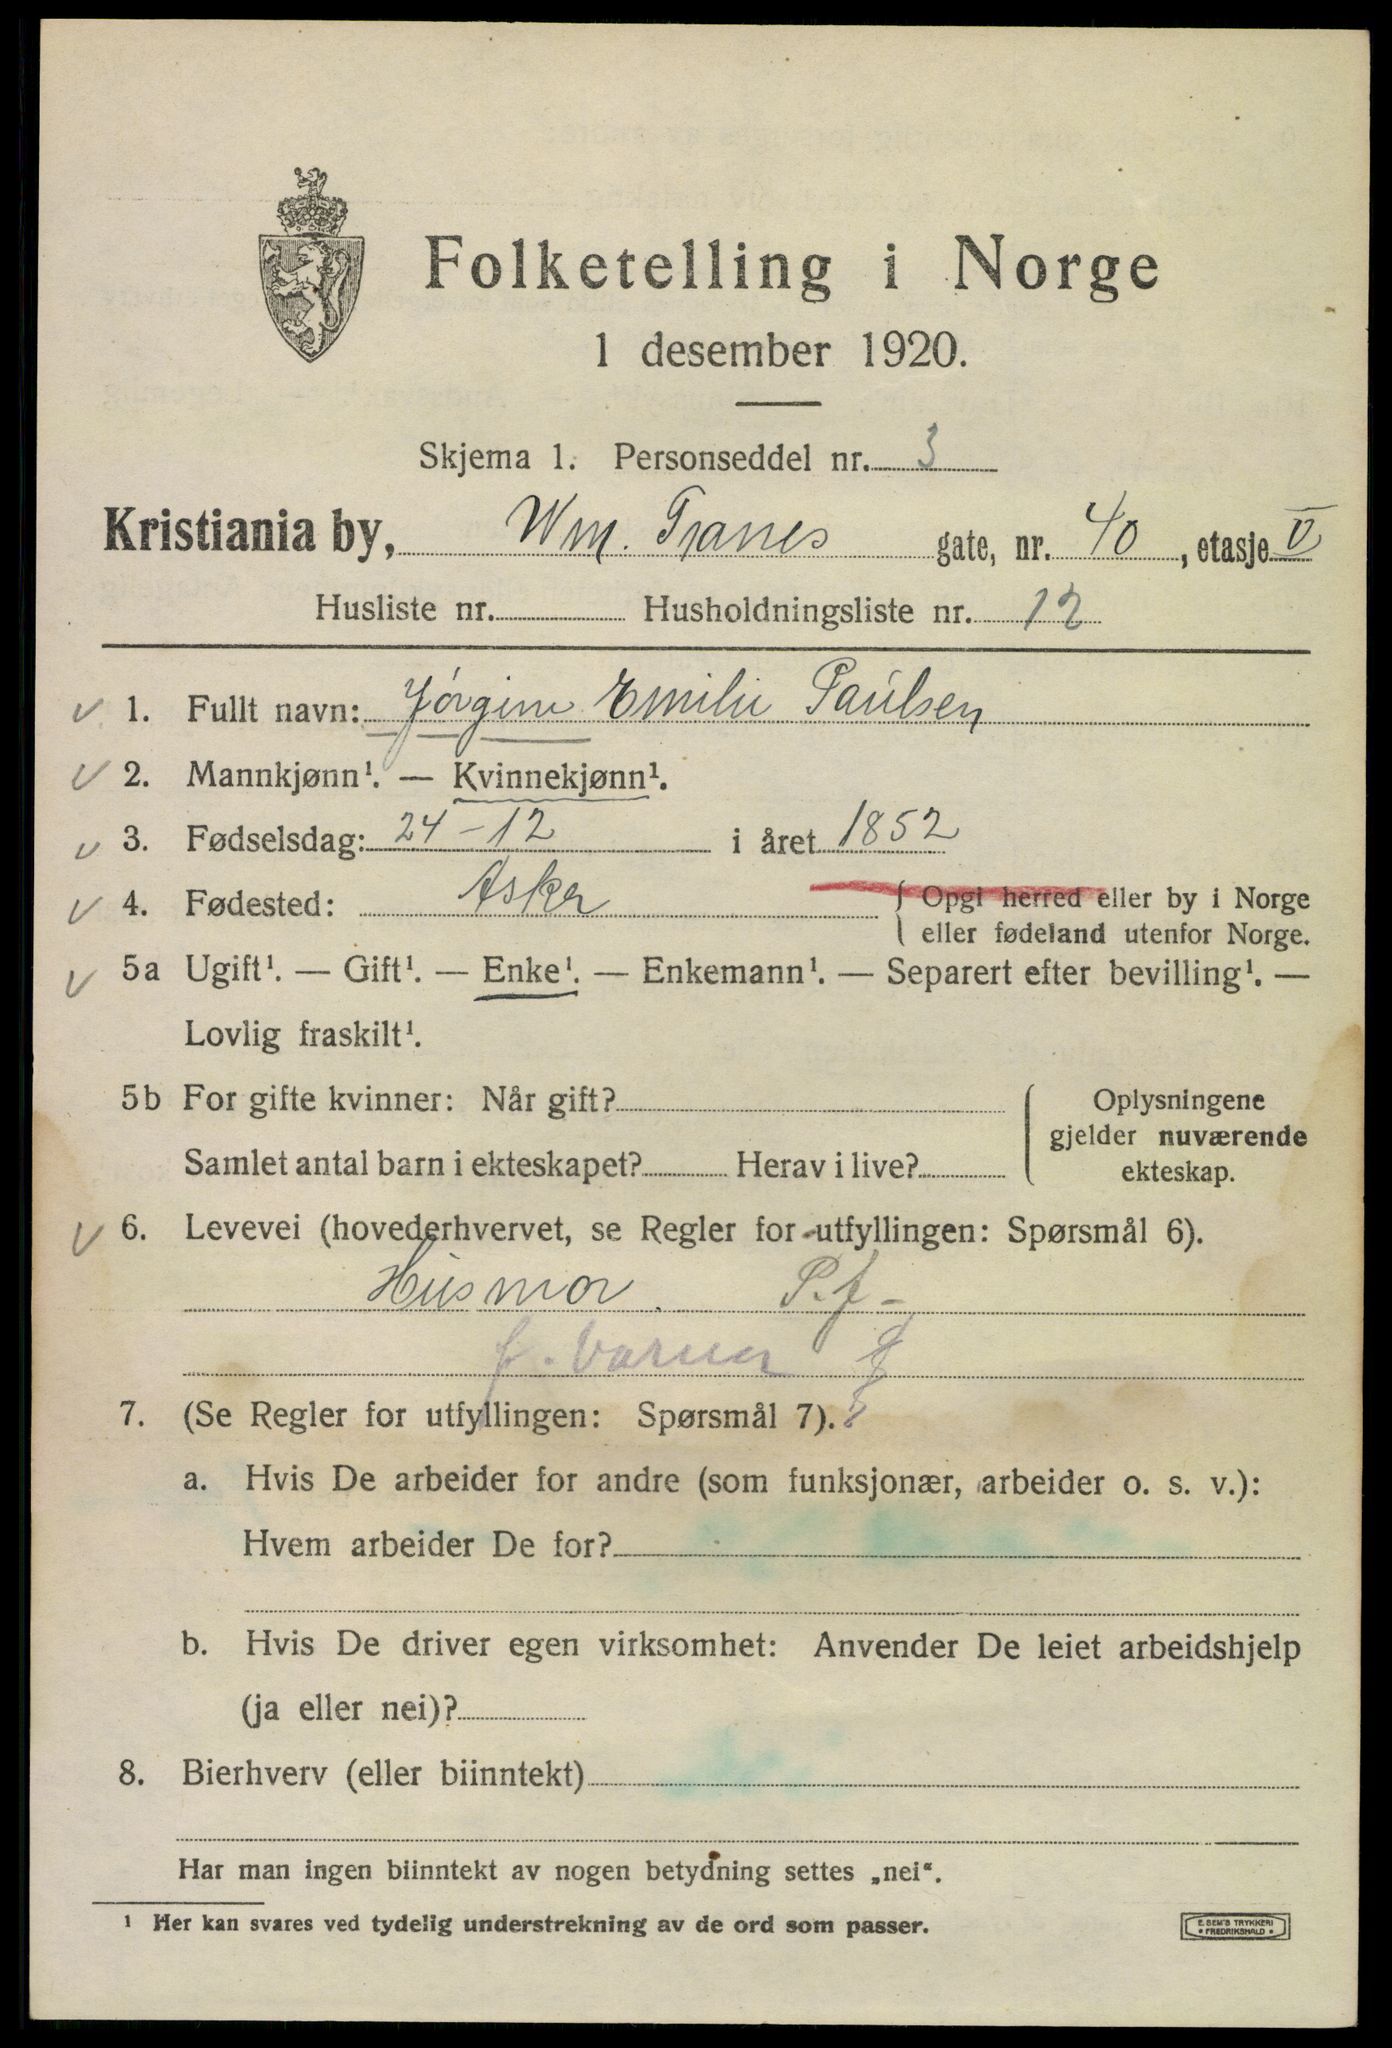 Folketelling i Norge
1 desember 1920.
Skjema 1. Personseddel nr. 3
Kristiania by, Wm. Tranes gate, nr. 40, etasje V
Husliste nr. Husholdningsliste nr. 12
1. Fullt navn: Jørgine Emilie Paulsen
2. Mannkjønn¹. — Kvinnekjønn¹.
3. Fødselsdag: 24-12 i året 1852
4. Fødested: Asker { Opgi herred eller by i Norge
eller fødeland utenfor Norge.
5a Ugift¹. — Gift¹. — Enke¹. — Enkemann¹. — Separert efter bevilling¹. —
Lovlig fraskilt¹.
5b For gifte kvinner: Når gift?
Samlet antal barn i ekteskapet? Herav i live?
Oplysningene
gjelder nuværende
ekteskap.
6. Levevei (hovederhvervet, se Regler for utfyllingen: Spørsmål 6).
Husmor. P.f-
f.
7. (Se Regler for utfyllingen: Spørsmål 7).
a. Hvis De arbeider for andre (som funksjonær, arbeider o. s. v.):
Hvem arbeider De for?
b. Hvis De driver egen virksomhet: Anvender De leiet arbeidshjelp
(ja eller nei)?
8. Bierhverv (eller biinntekt)
Har man ingen biinntekt av nogen betydning settes „nei“.
¹ Her kan svares ved tydelig understrekning av de ord som passer.
E. SEM'S TRYKKERI
• FREDRIKSHALD •